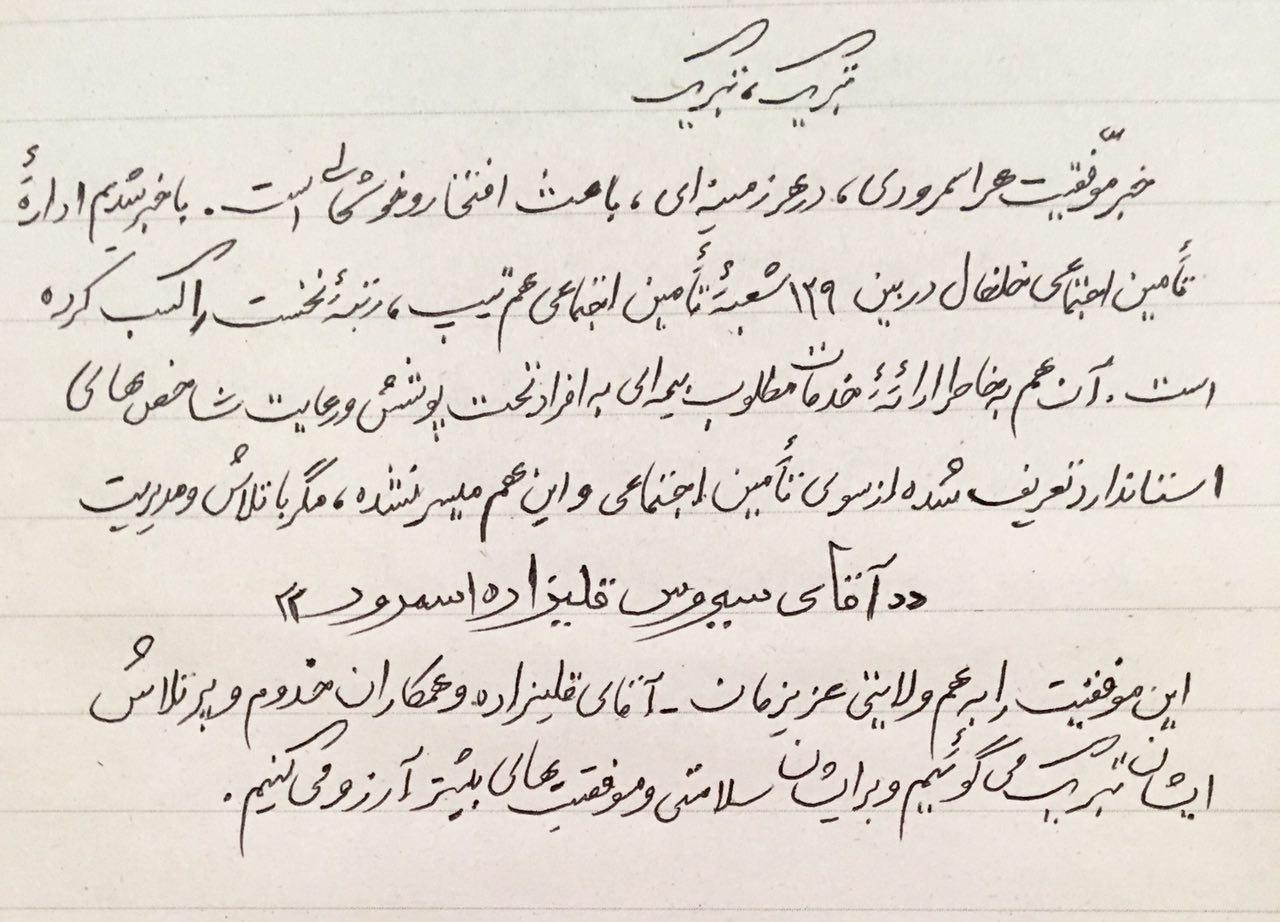 تبریک، تبریک
خبر موفّقیت هر اسمرودی، در هر زمینه‌ای، باعث افتخار و خوشحالی است. باخبر شدیم ادارهٔ
تأمین اجتماعی خلخال در بین ۱۳۹ شعبهٔ تأمین اجتماعی هم تیپ، رتبهٔ نخست را کسب کرده
است. آن هم به خاطر ارائهٔ خدمات مطلوب بیمه‌ای به افراد تحت پوشش و رعایت شاخص‌های
استاندارد تعریف شده از سوی تأمین اجتماعی و این مهم میسر نشده، مگر با تلاش و مدیریت
«آقای سیروس قلیزاده اسمرود»
این موفقیت را به هم ولایتی عزیزمان - آقای قلیزاده و همکاران خدوم و پرتلاش
ایشان تبریک می‌گوئیم و برایشان سلامتی و موفقیت‌های بیشتر آرزو می‌کنیم.